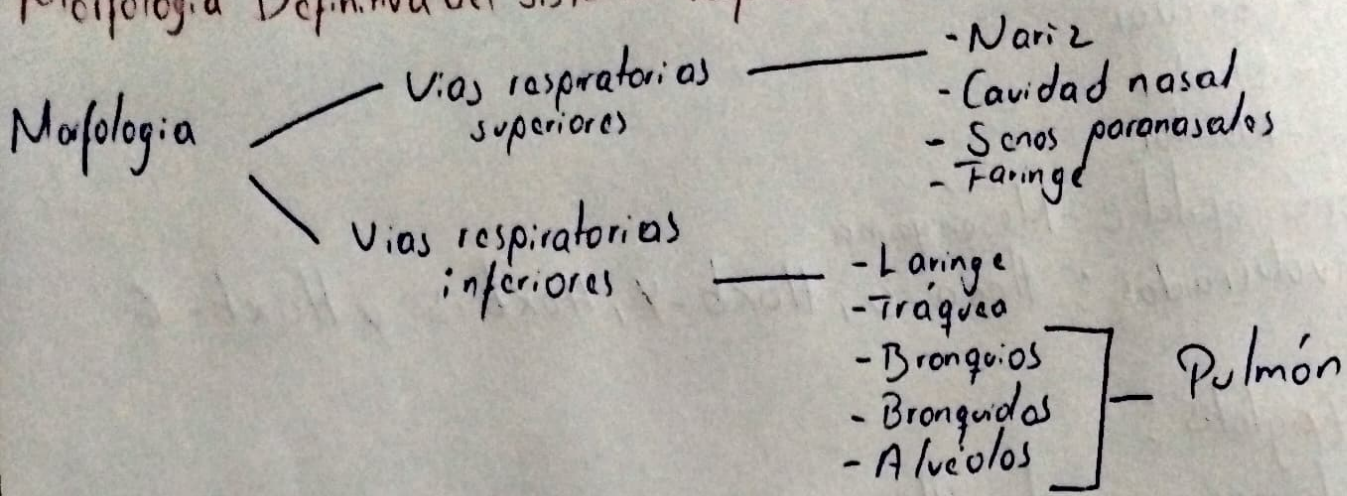 Morfología Definitiva del sis
Morfologia
Vias respiratorias
superiores
- Nariz
- Cavidad nasal
- Senos paranasales
- Faringe
Vias respiratorias
inferiores
- Laringe
- Tráquea
- Bronquios
- Bronquiolos
- Alvéolos
Pulmón